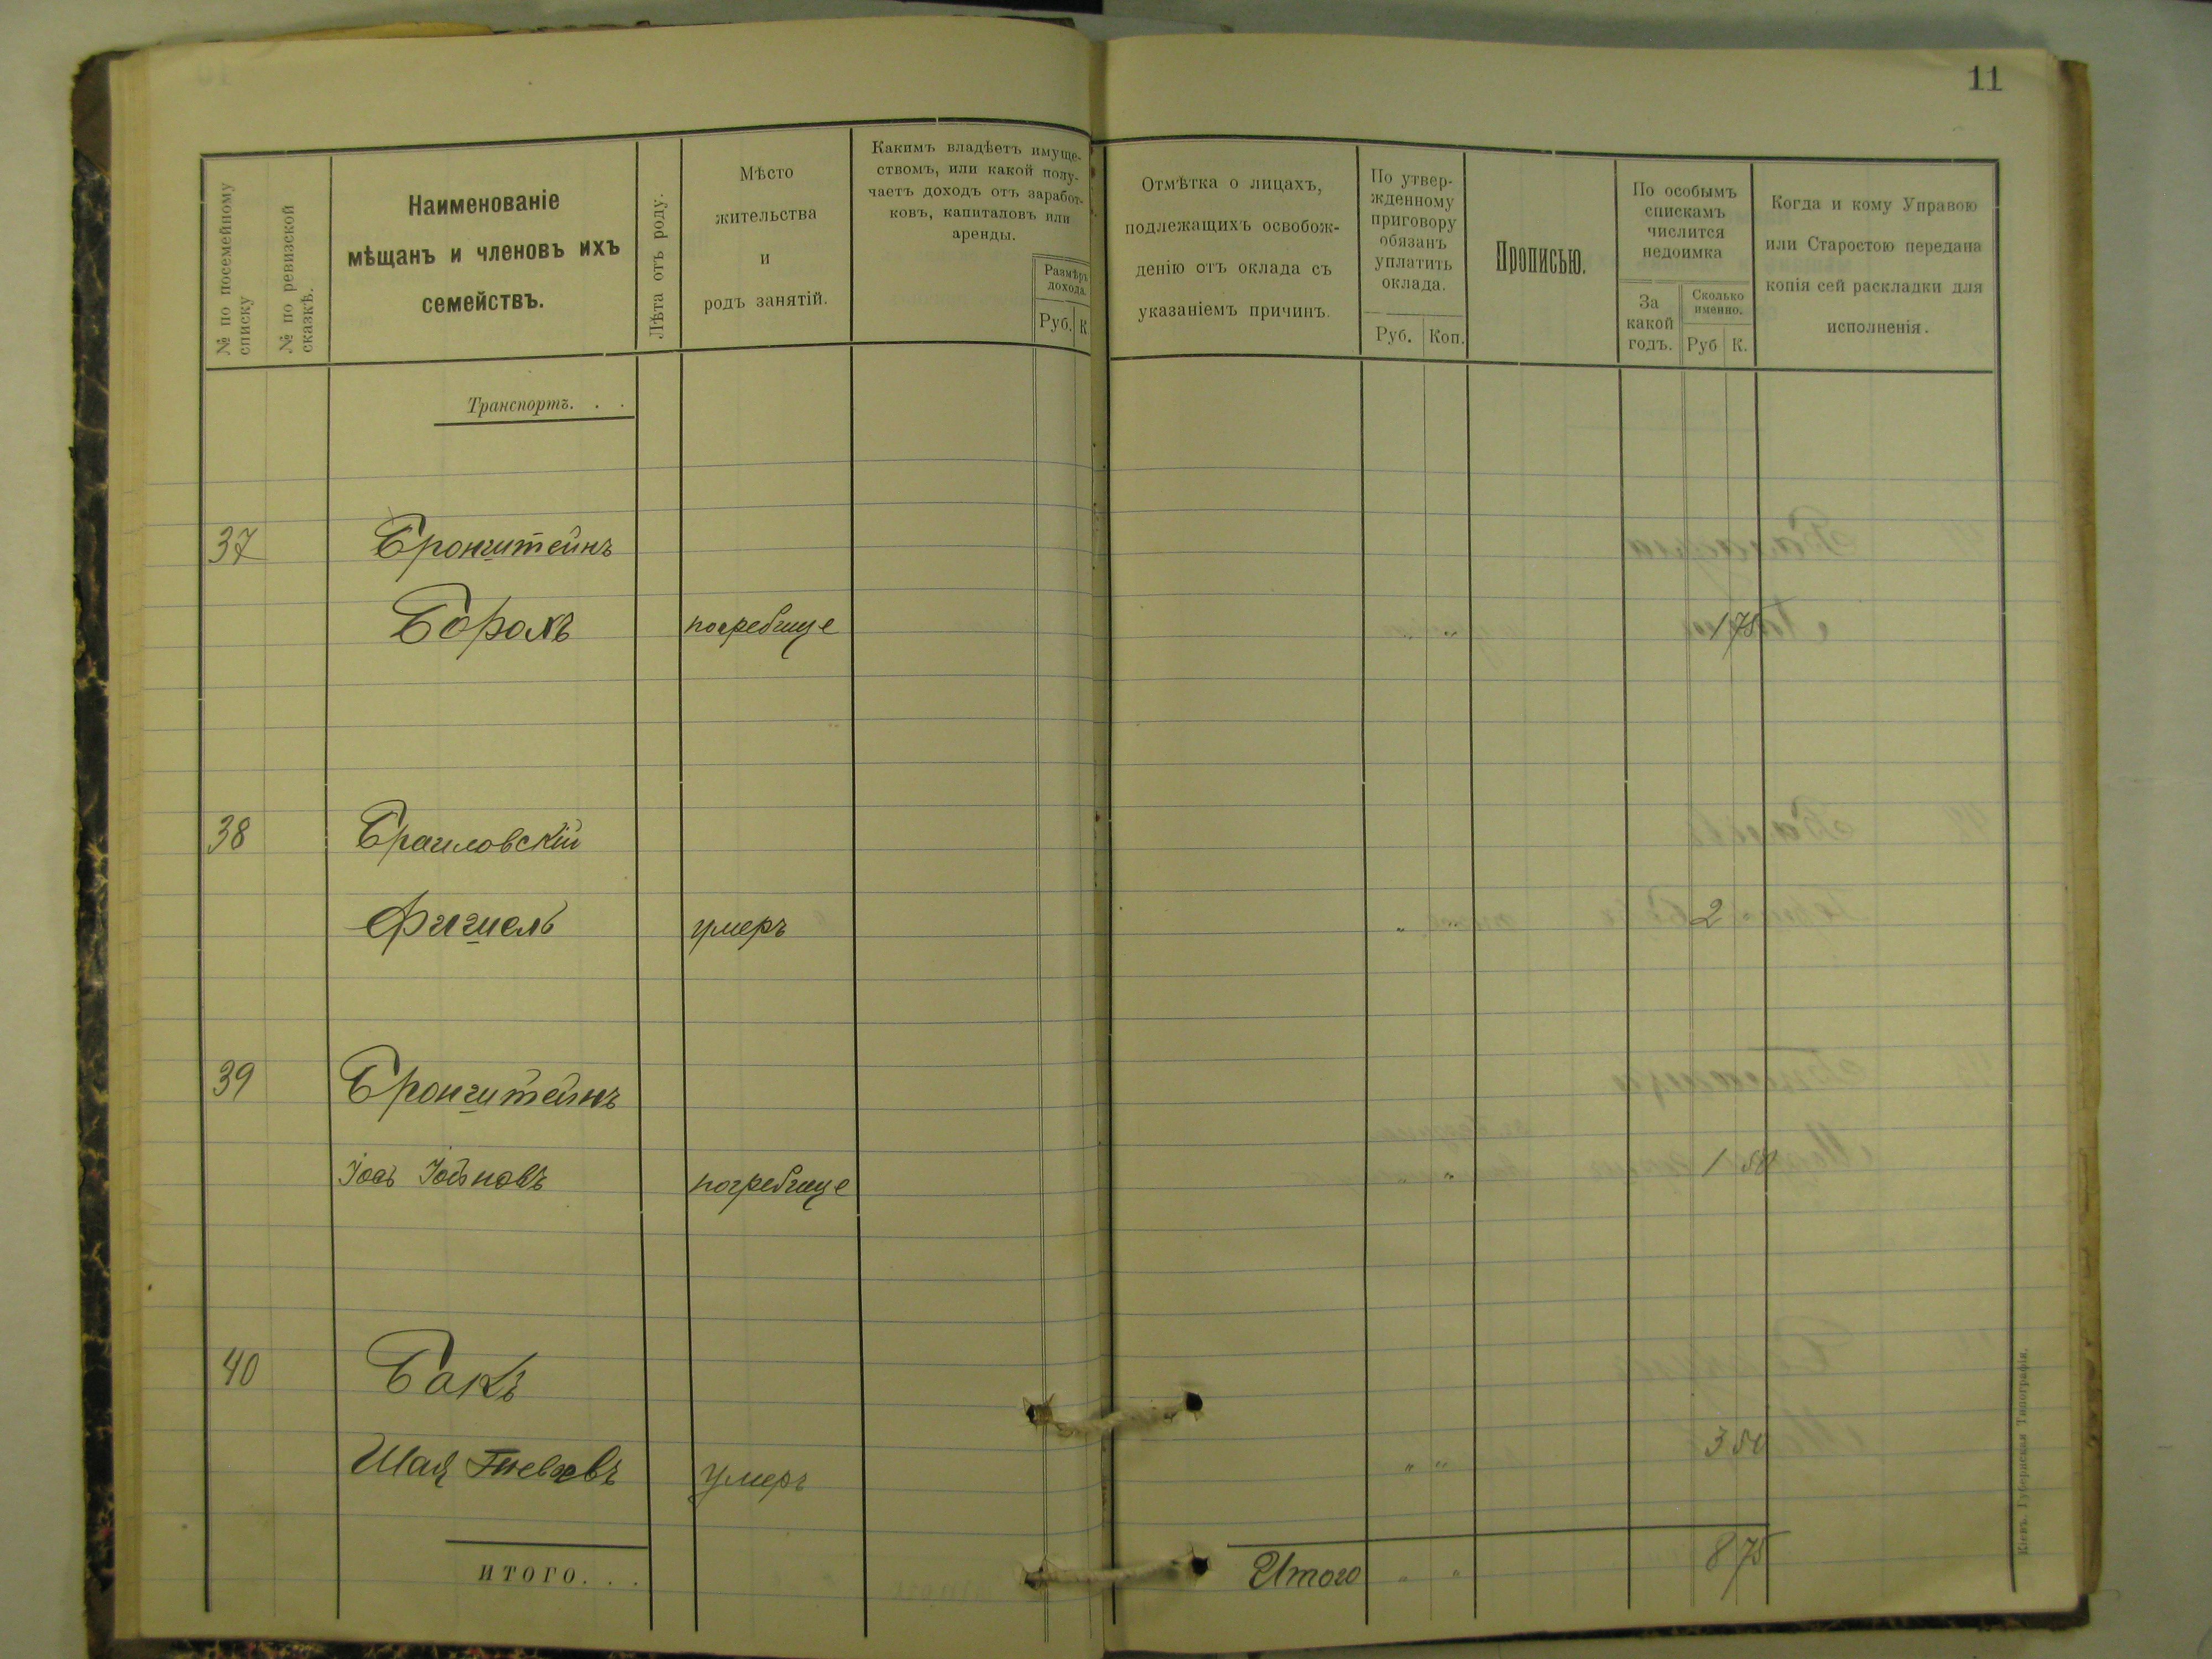 11
№ по посемейному списку
№ по ревизской сказкѣ.
Наименованіе
мѣщанъ и членовъ ихъ
семействъ.
Лѣта отъ роду.
Мѣсто
жительства
и
родъ занятій.
Какимъ владѣетъ имуще-
ствомъ, или какой полу-
чаетъ доходъ отъ заработ-
ковъ, капиталовъ или
аренды.
Размѣръ
дохода.
Руб. К
Отмѣтка о лицахъ,
подлежащихъ освобож-
денію отъ оклада съ
указаніемъ причинъ.
По утвер-
жденному
приговору
обязанъ
уплатить
оклада.
Руб. Коп.
Прописью.
По особымъ
спискамъ
числится
недоимка
За
какой
годъ.
Сколько
именно.
Руб К.
Когда и кому Управою
или Старостою передана
копія сей раскладки для
исполненія.
Транспортъ. . .
37 Бронштейнъ
погребище " " 1 75
38 Браиловскій
Фишель умеръ " " 2
39 Бронштейнъ
Іось погребище " " 1 50
40 Бакъ
Шая умеръ " " 3 50
ИТОГО. . .
Итого " " 8 75
Кіевъ. Губернская Типографія.